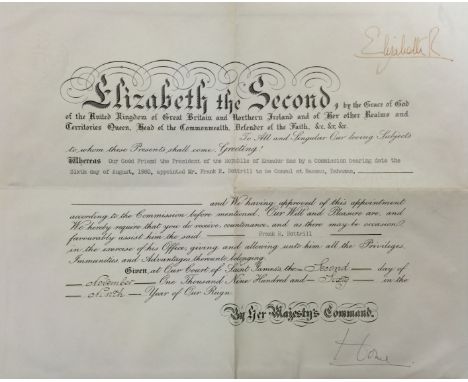 Elizabeth R
Elizabeth the Second, by the Grace of God
of the United Kingdom of Great Britain and Northern Ireland and of Her other Realms and
Territories Queen, Head of the Commonwealth, Defender of the Faith, &c. &c. &c.
To All and Singular Our loving Subjects
to whom these Presents shall come, Greeting!
Whereas Our Good Friend the President of the Republic of Ecuador has by a Commission bearing date the
Sixth day of August, 1960, appointed Mr. Frank R. Bottrill to be Consul at Nassau, Bahamas,
and We having approved of this appointment
according to the Commission before mentioned, Our Will and Pleasure are, and
We hereby require that you do receive, countenance, and as there may be occasion
favourably assist him the said Frank R. Bottrill
in the exercise of his Office, giving and allowing unto him all the Privileges,
Immunities and Advantages thereunto belonging.
Given at Our Court of Saint James's the Second day of
November One Thousand Nine Hundred and Sixty in the
Ninth Year of Our Reign.
By Her Majesty's Command.
Home